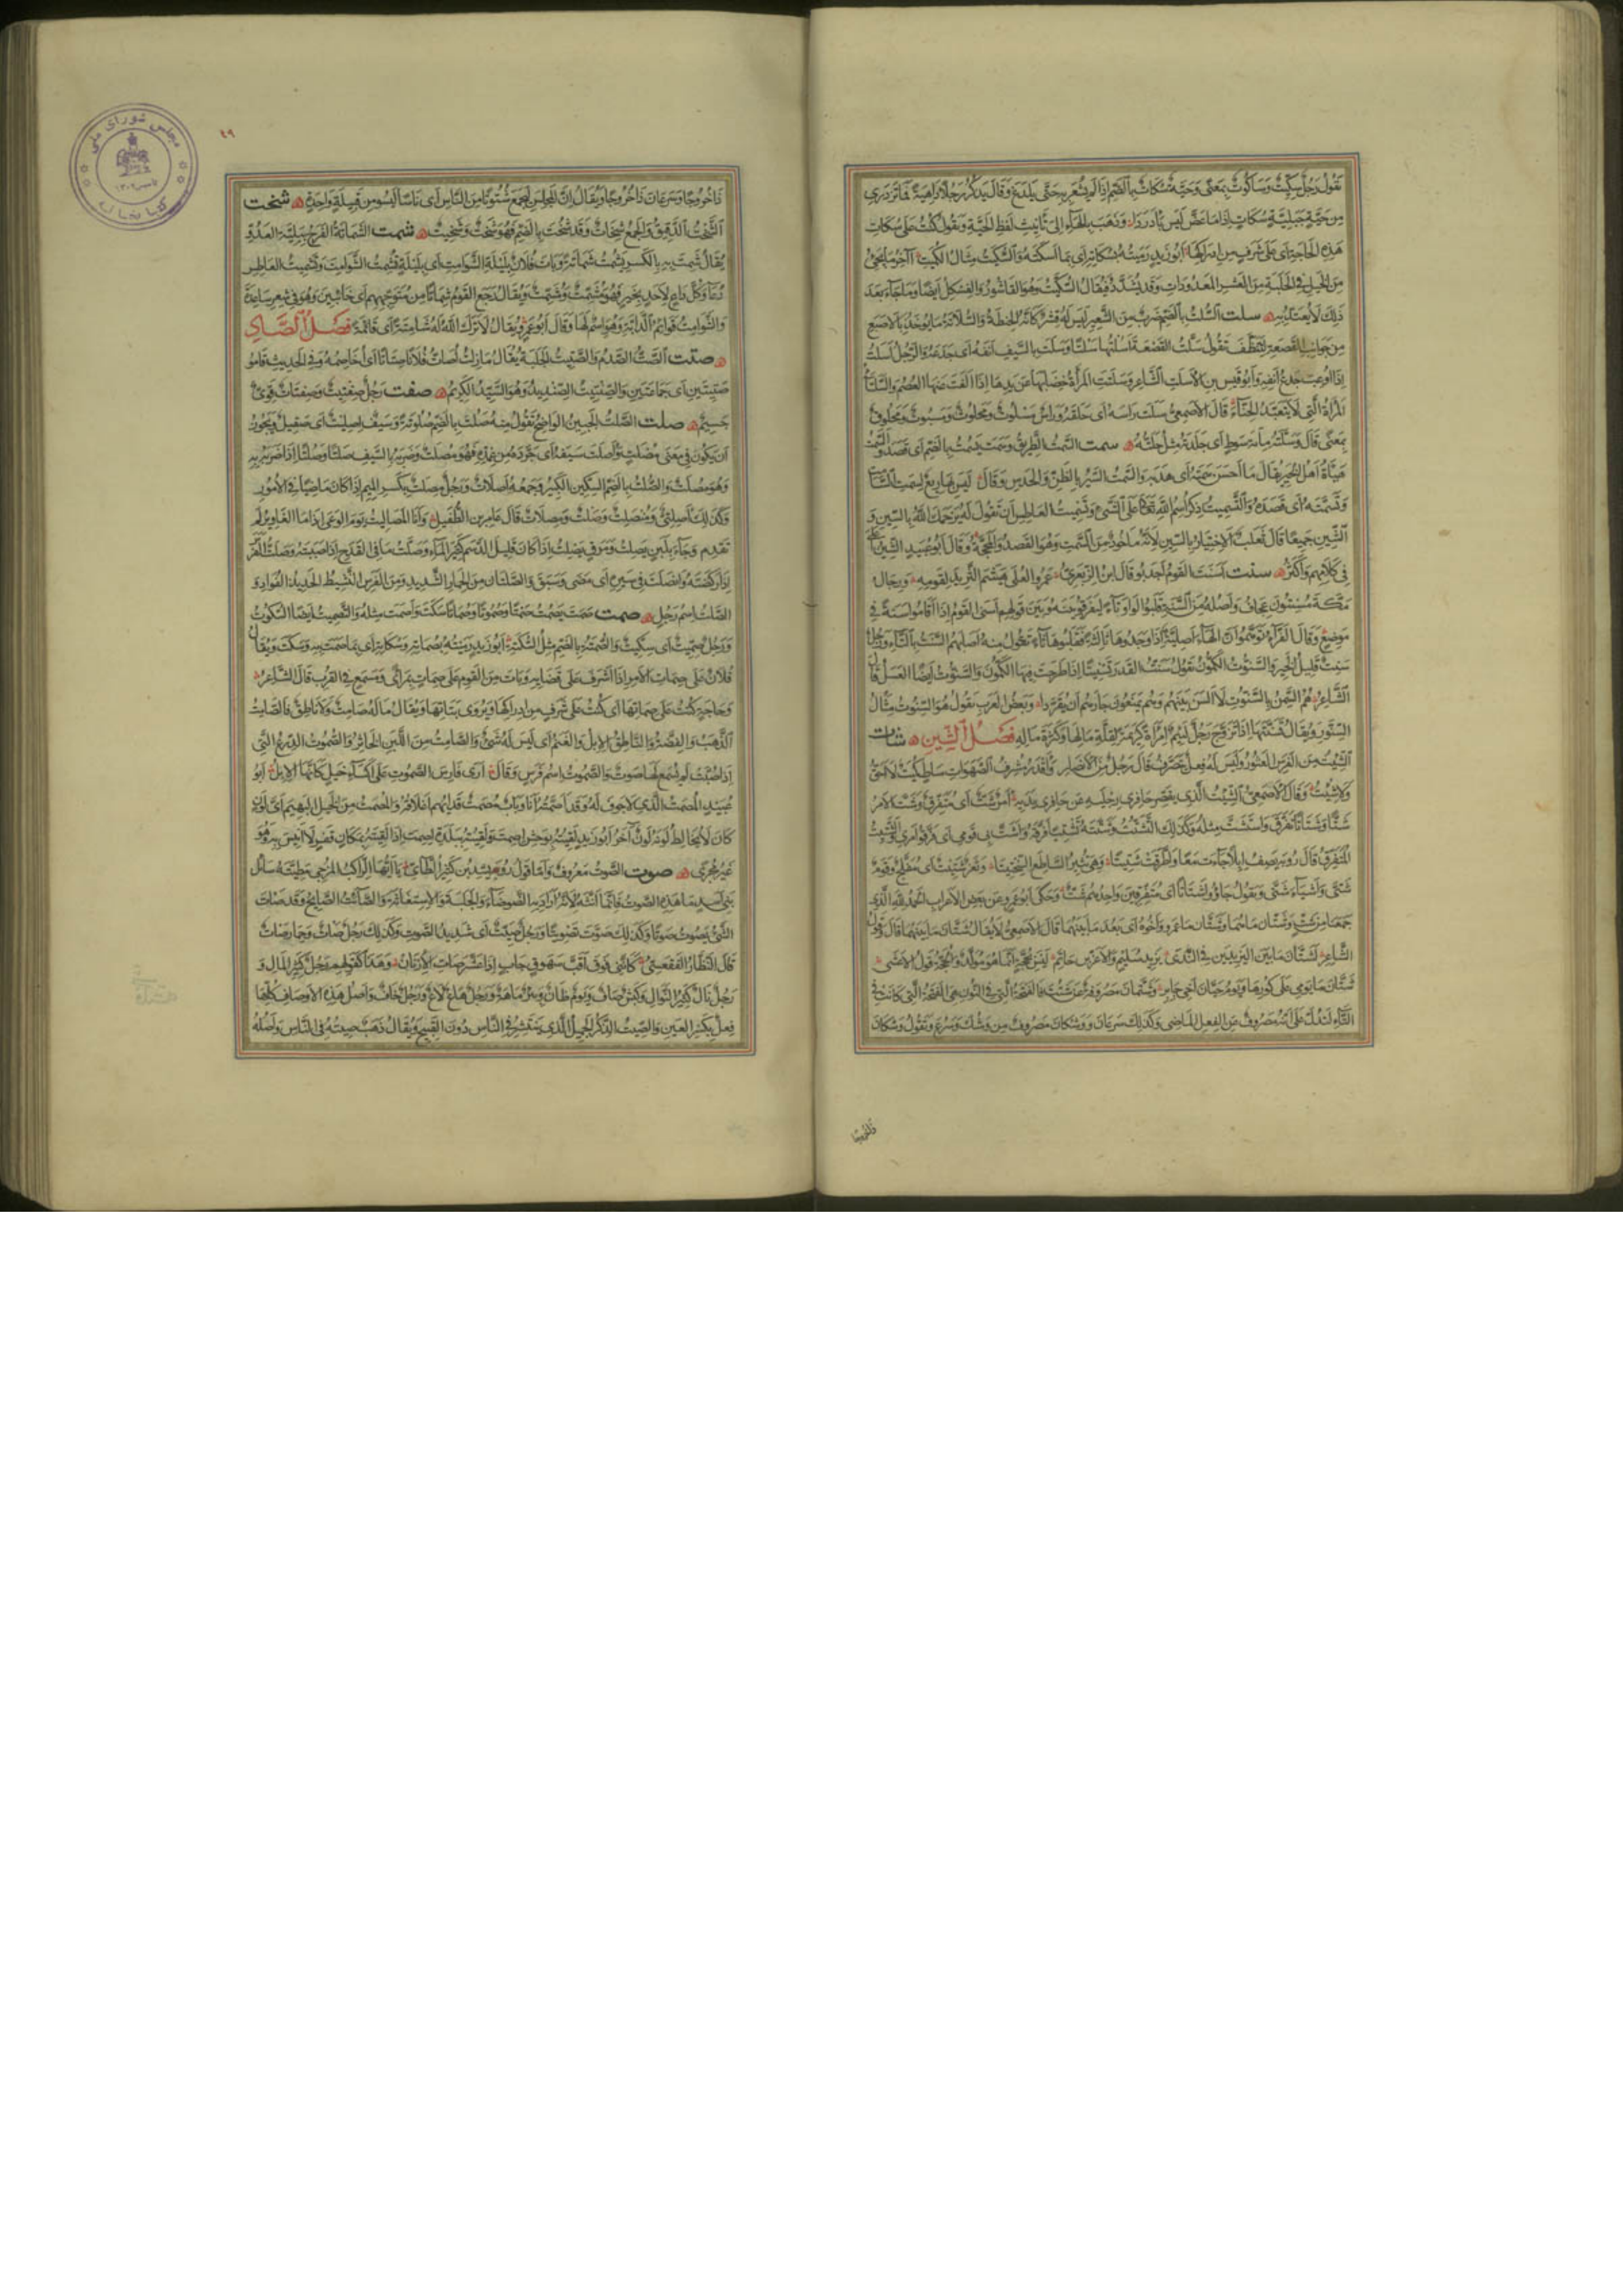 تقول رجل سكيت وساكوت بمعنى وحية سكات بالضم اذا لم يشعر به حتى يلدغ وقال يذكر رجلا داهية فما تزدري
من حية جبلية سكات اذا ما عض ليس بأدردا وذهب بالهاء الى تأنيث لفظ الحية وتقول كنت على سكات
هذه الحاجة اى على شرف من ادراكها ابو زيد رميته بسكاته اى بما اسكته والسكيت مثال الكميت آخر ما يجئ
من الخيل فى الحلبة من العشر المعدودات وقد يشدد فيقال السكيت وهو القاشور والفسكل ايضا وما جاء بعد
ذلك لا يعتد به سلت السلت بالضم ضرب من الشعير ليس له قشر كانه الحنطة والسلاتة ما يؤخذ بالاصبع
من جوانب القصعة لتنظف تقول سلت القصعة اسلتها سلتا وسلت بالسيف انفه اى جدعه والرجل اسلت
اذا اوعب جدع انفه وابو قيس بن الاسلت الشاعر وسلتت المرأة خضابها عن يدها اذا القت عنها العصم والسلتاء
المرأة التى لا تتعهد الحناء قال الاصمعى سلت رأسه اى حلقه ورأس مسلوت ومحلوت ومسبوت ومحلوق
بمعنى قال وسلته مائة سوط اى جلدة مثل حلته سمت السمت الطريق وسمت يسمت بالضم اى قصد والسمت
هيأة اهل الخير يقال ما احسن سمته اى هديه والسمت السير بالظن والحدس وقال ليس بها ريع لسمت السامت
وتسمته اى قصده والتسميت ذكر اسم الله تعالى على الشئ وتسميت العاطس ان تقول له يرحمك الله بالسين و
الشين جميعا قال ثعلب الاختيار بالسين لانه مأخوذ من السمت وهو القصد والمحجة وقال ابو عبيد الشين اعلى
فى كلامهم واكثر سنت اسنت القوم اجدبوا قال ابن الزبعرى عمرو العلى هشم الثريد لقومه ورجال
مكة مسنتون عجاف واصله من السنة قلبوا الواو تاء ليفرقوا بينه وبين قولهم اسنى القوم اذا اقاموا سنة فى
موضع وقال الفراء توهموا ان الهاء اصلية اذ وجدوها ثالثة فقلبوها تاء تقول منه اصابهم السنت بالتاء ورجل
سنت قليل الخير والسنوت الكمون تقول سنت القدر تسنيتا اذا طرحت فيها الكمون والسنوت ايضا العسل قال
الشاعر هم السمن بالسنوت لا الس بينهم وهم يمنعون جارهم ان يقردا وبعض العرب يقول هو السنوت مثال
السنور ويقال تسنتها اذا تزوج رجل لئيم امرأة كريمة لقلة مالها وكثرة ماله فصل الشين شات
الشئيت من الفرس العثور وليس له فعل يتصرف قال رجل من الانصار واقدر مشرف الصهوات ساط كميت لا احق
ولا شئيت وقال الاصمعى الشئيت الذى يقصر حافرى رجليه عن حافرى يديه امر شت اى متفرق وشت الامر
شتا وشتاتا تفرق واستشت مثله وكذلك التشتت وشتته تشتيتا فرقه واشت بى قومى اى فرقوا امرى والشتيت
المتفرق قال رؤبة يصف ابلا جاءت معا واطرقت شتيتا وهى تثير الساطع السختيتا وثغر شتيت اى مفلج وقوم
شتى واشياء شتى وتقول جاؤا اشتاتا اى متفرقين واحدهم شت وحكى ابو عمرو عن بعض الاعراب الحمد لله الذى
جمعنا من شت وشتان ما هما وشتان ما عمرو واخوه اى بعد ما بينهما قال الاصمعى لا يقال شتان ما بينهما قال وقول
الشاعر لشتان ما بين اليزيدين فى الندى يزيد سليم والاغر بن حاتم ليس بحجة انما هو مولد والحجة قول الاعشى
شتان ما يومى على كورها ويوم حيان اخى جابر وشتان مصروفة عن شتت فالفتحة التى فى النون هى الفتحة التى كانت فى
التاء لتدل على انه مصروف عن الفعل الماضى وكذلك سرعان ووشكان مصروف من وشك وسرع وتقول وشكان
٤٩
مجلس شورای ملی
کتابخانه
ذا خروجا وسرعان ذا خروجا ويقال ان المجلس ليجمع شتوتا من الناس اى ناسا ليسوا من قبيلة واحدة شخت
الشخت الدقيق والجمع شخات وقد شخت بالضم فهو شخت وشخيت شمت الشماتة الفرح ببلية العدو
يقال شمت به بالكسر يشمت شماتة وبات فلان بليلة الشوامت اى بليلة تشمت الشوامت وتشميت العاطس
دعاء وكل داع لاحد بخير فهو مشمت ومسمت ويقال رجع القوم شماتا من متوجههم اى خائبين وهو فى شعر ساعدة
والشوامت قوائم الدابة وهو اسم لها وقال ابو عمرو يقال لا ترك الله له شامتة اى قائمة فصل الصاد
صتت الصت الصدم والصتيت الجلبة يقال ما زلت اصات فلانا صتاتا اى اخاصمه وفى الحديث قاموا
صتيتين اى جماعتين والصنتيت الصنديد وهو السيد الكريم صفت رجل صفتيت وصفتات قوى
جسيم صلت الصلت الجبين الواضح تقول منه صلت بالضم صلوتة وسيف اصليت اى صقيل ويجوز
ان يكون فى معنى مصلت واصلت سيفه اى جرده من غمده فهو مصلت وضربه بالسيف صلتا وصلتا اذا ضربه به
وهو مصلت والصلت بالضم السكين الكبير وجمعه اصلات ورجل مصلت بكسر الميم اذا كان ماضيا فى الامور
وكذلك اصلتى ومنصلت وصلت ومصلات قال عامر بن الطفيل وانا المصاليت يوم الوغى اذا ما المغاوير لم
تقدم وجاء بلبن يصلت ومرق يصلت اذا كان قليل الدسم كثير الماء وصلت ما فى القدح اذا صببته وصلت الفرس
اذا ركضته وانصلت فى سيره اى مضى وسبق والصلتان من الحمار الشديد ومن الفرس النشيط الحديد الفؤاد و
الصلت اسم رجل صمت صمت يصمت صمتا وصموتا وصماتا سكت واصمت مثله والتصميت ايضا السكوت
ورجل صميت اى سكيت والصمتة بالضم مثل السكتة ابو زيد رميته بصماته وسكاته اى بما صمت به وسكت ويقال
فلان على صمات الامر اذا اشرف على قضائه وبات من القوم على صمات بمرأى ومسمع فى القرب قال الشاعر
وحاجة كنت على صماتها اى كنت على شرف من ادراكها ويروى بتاتها ويقال ما له صامت ولا ناطق فالصامت
الذهب والفضة والناطق الابل والغنم اى ليس له شئ والصامت من اللبن الخاثر والصموت الدرع التى
اذا صبت لم يسمع لها صوت والصموت اسم فرس وقال ارى فارس الصموت على اكساء خيل كانها الابل ابو
عبيد المصمت الذى لا جوف له وقد اصمته انا وباب مصمت قد ابهم اغلاقه والمصمت من الخيل البهيم اى لون
كان لا يخالط لونه لون آخر ابو زيد لقيته بوحش اصمت ولقيته ببلدة اصمت اذا لقيته بمكان قفر لا انيس به وهو
غير مجرى صوت الصوت معروف واما قول رويشد بن كثير الطائى يا ايها الراكب المزجى مطيته سائل
بنى اسد ما هذه الصوت فانما انثه لانه اراد به الضوضاء والجلبة والاستغاثة والصائت الصائح وقد صات
الشئ يصوت صوتا وكذلك صوت تصويتا ورجل صيت اى شديد الصوت وكذلك رجل صات وحمار صات
قال النظار الفقعسى كاننى فوق اقب سهوق جاب اذا عشر صات الارنان وهذا كقولهم رجل كثير المال و
رجل نال كثير النوال وكبش صاف ويوم طان وبئر ماهة ورجل هاع لاع ورجل خاف واصل هذه الاوصاف كلها
فعل بكسر العين والصيت الذكر الجميل الذى ينتشر فى الناس دون القبيح ويقال ذهب صيته فى الناس واصله